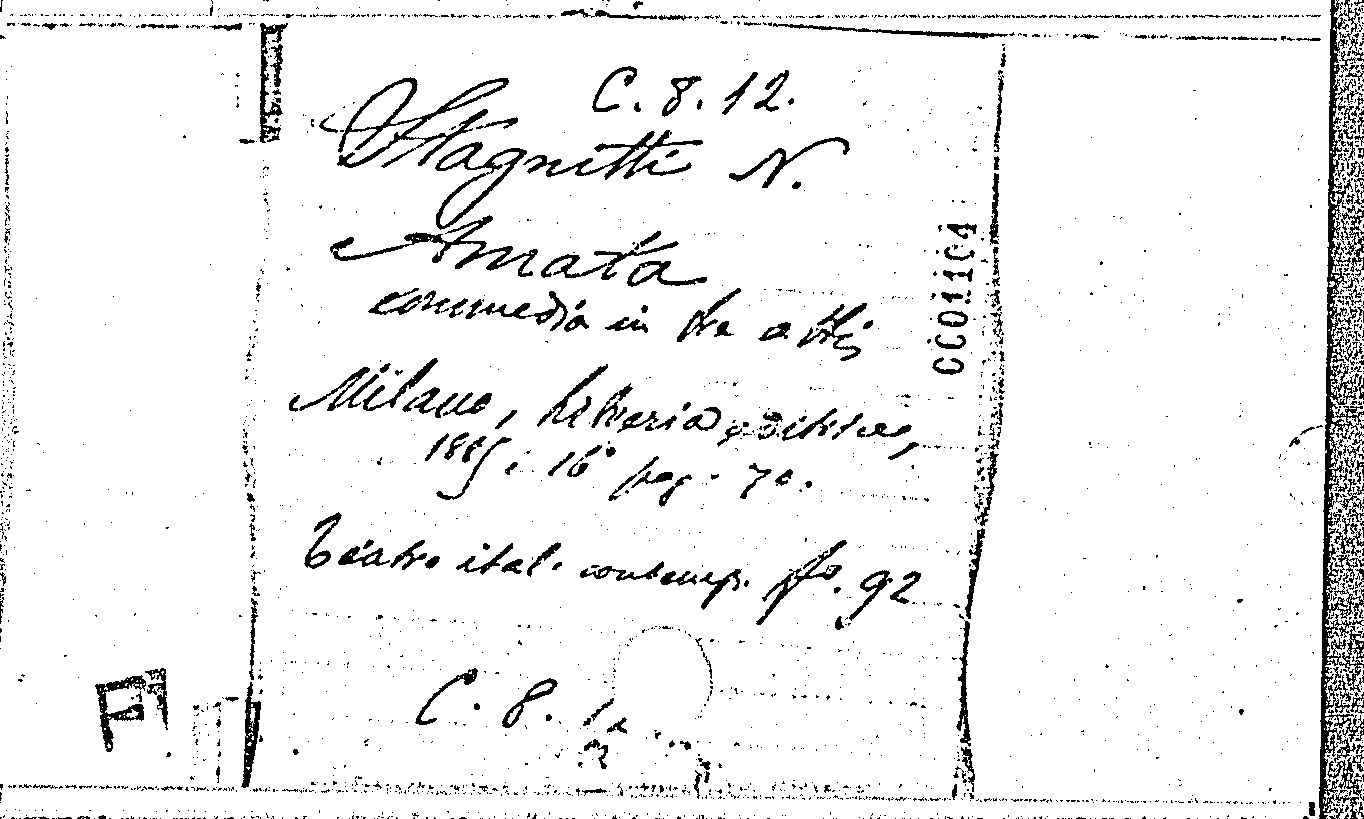 C. 8. 12.
Stagnitti N.
Amata
commedia in tre atti
Milano, libreria editrice,
1885. 16° pag. 70.
Teatro ital. contemp. fo. 92
C. 8. 12
0001104